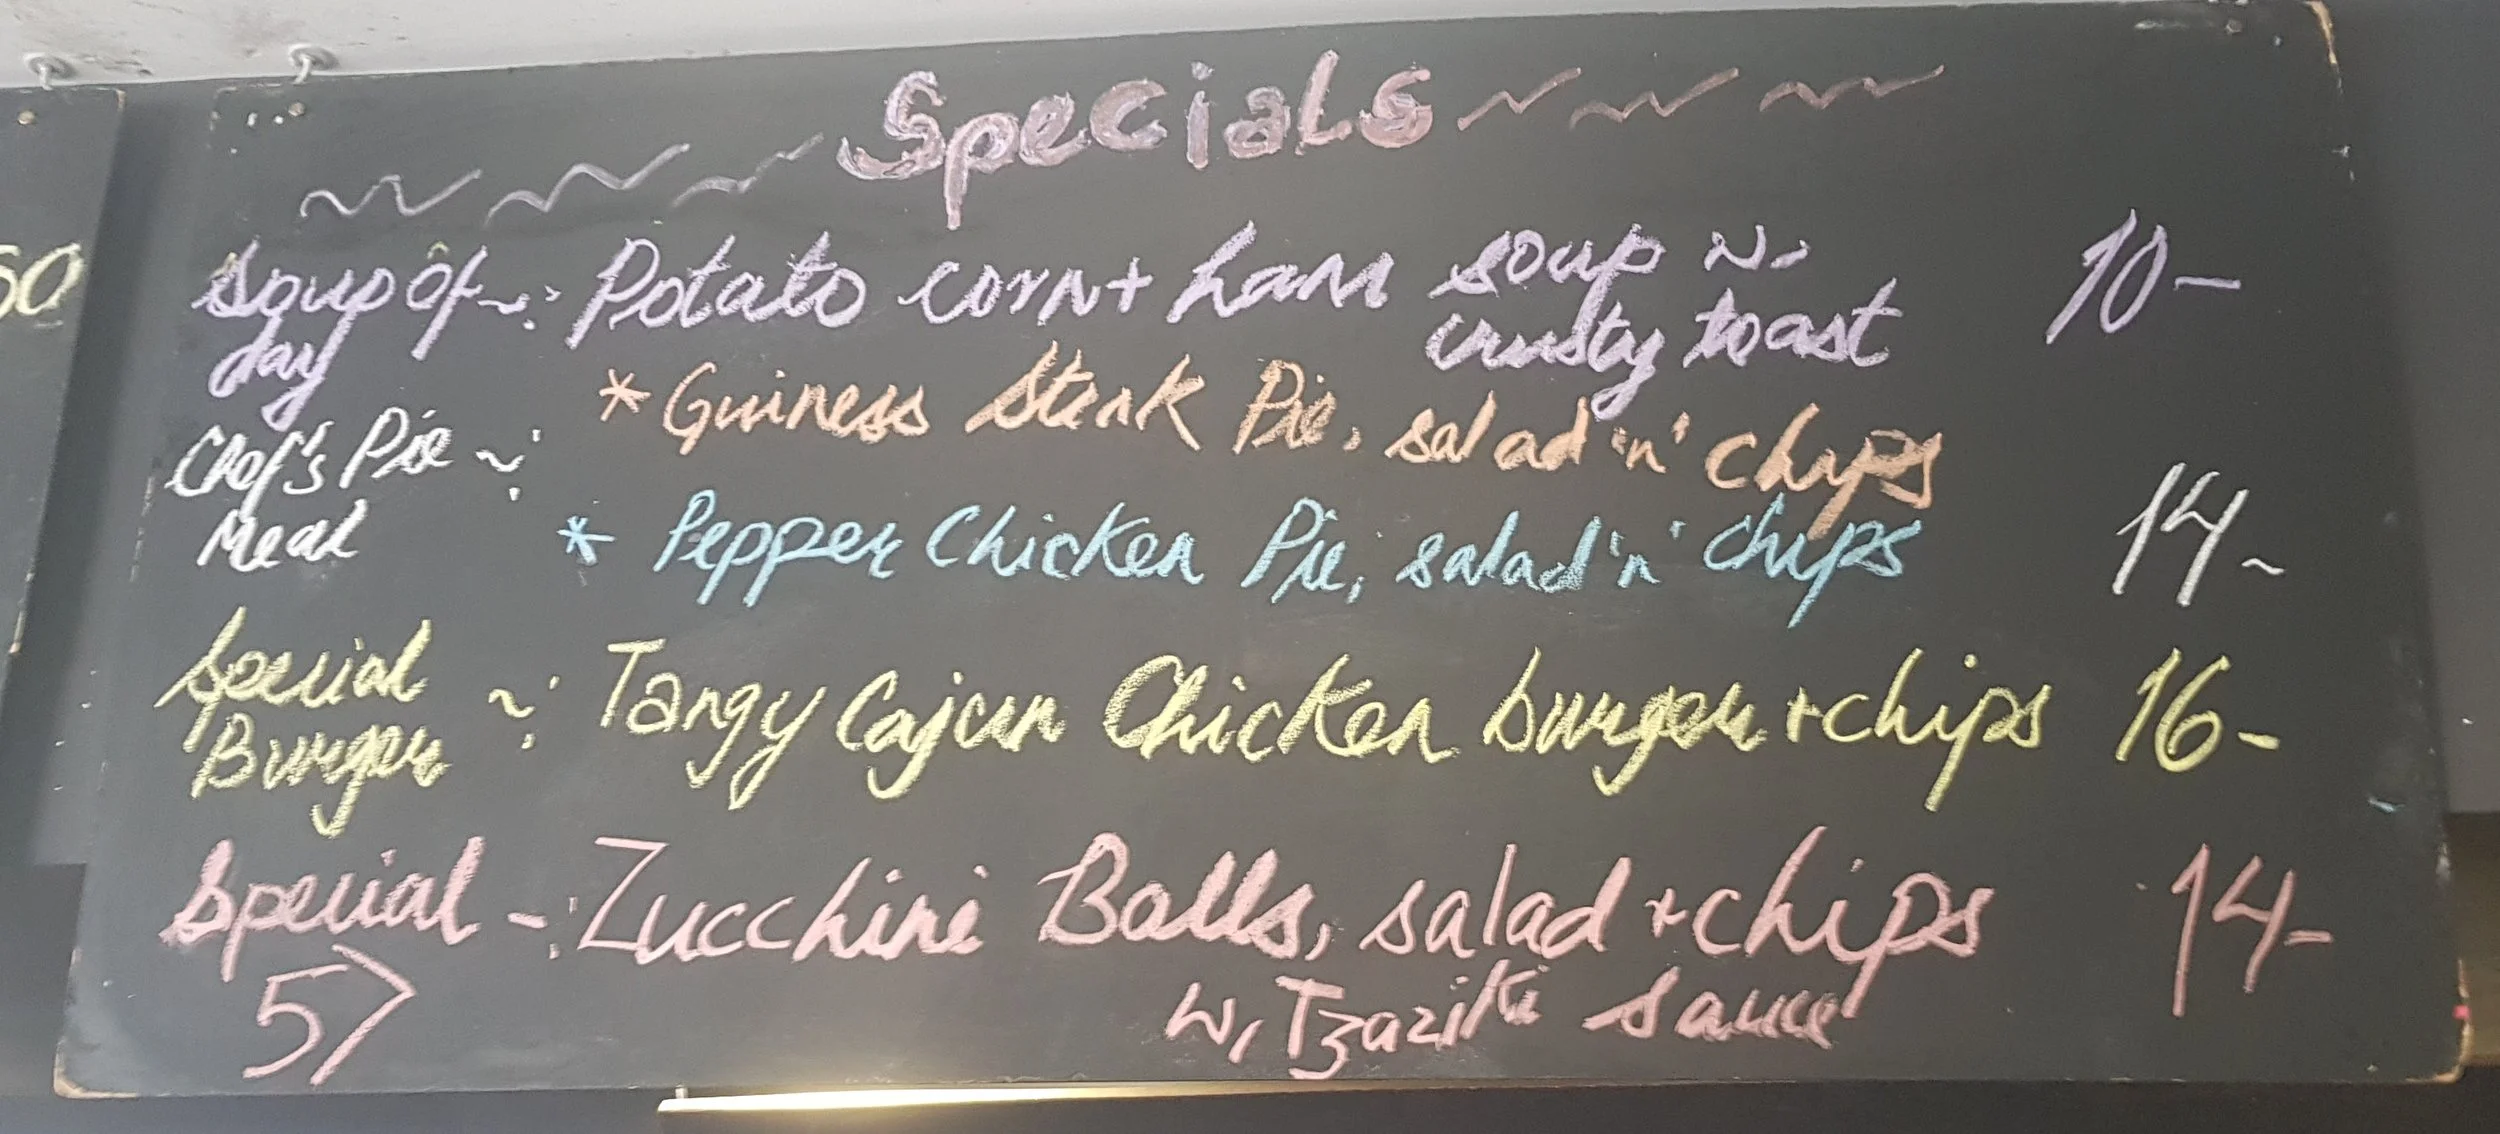 Specials
Soup of ~: Potato corn + ham soup w. 10-
day crusty toast
* Guiness Steak Pie, salad 'n' chips
Chef's Pie ~:
Meal * Pepper Chicken Pie, salad 'n' chips 14~
Special
Burger ~: Tangy Cajun Chicken burger + chips 16-
Special -: Zucchini Balls, salad + chips 14-
57 w, Tzaziki sauce
50